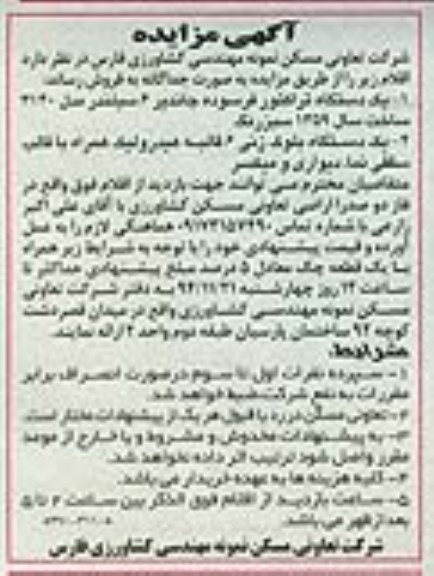 آگهی مزایده
شرکت تعاونی مسکن نمونه مهندسی کشاورزی فارس در نظر دارد
اقلام زیر را از طریق مزایده به صورت جداگانه به فروش رساند:
۱- یک دستگاه تراکتور فرسوده جاندیر ۴ سیلندر مدل ۳۱۴۰
ساخت سال ۱۳۵۹ سبز رنگ
۲- یک دستگاه بلوک زنی ۶ قالبه هیدرولیک همراه با قالب
سقفی نما، دیواری و میکسر
متقاضیان محترم می توانند جهت بازدید از اقلام فوق واقع در
فاز دو صدرا اراضی تعاونی مسکن کشاورزی با آقای علی اکبر
زارعی با شماره تماس ۰۹۱۷۳۱۵۷۴۹۰ هماهنگی لازم را به عمل
آورده و قیمت پیشنهادی خود را با توجه به شرایط زیر همراه
با یک قطعه چک معادل ۵ درصد مبلغ پیشنهادی حداکثر تا
ساعت ۱۴ روز چهارشنبه ۹۴/۱۱/۲۱ به دفتر شرکت تعاونی
مسکن نمونه مهندسی کشاورزی واقع در میدان قصردشت
کوچه ۹۴ ساختمان پارسیان طبقه دوم واحد ۴ ارائه نمایند.
شرایط:
۱- سپرده نفرات اول تا سوم در صورت انصراف برابر
مقررات به نفع شرکت ضبط خواهد شد.
۲- تعاونی مسکن در رد یا قبول هر یک از پیشنهادات مختار است.
۳- به پیشنهادات مخدوش و مشروط و یا خارج از موعد
مقرر واصل شود ترتیب اثر داده نخواهد شد.
۴- کلیه هزینه ها به عهده خریدار می باشد.
۵- ساعت بازدید از اقلام فوق الذکر بین ساعت ۲ تا ۵
بعد از ظهر می باشد.
شرکت تعاونی مسکن نمونه مهندسی کشاورزی فارس